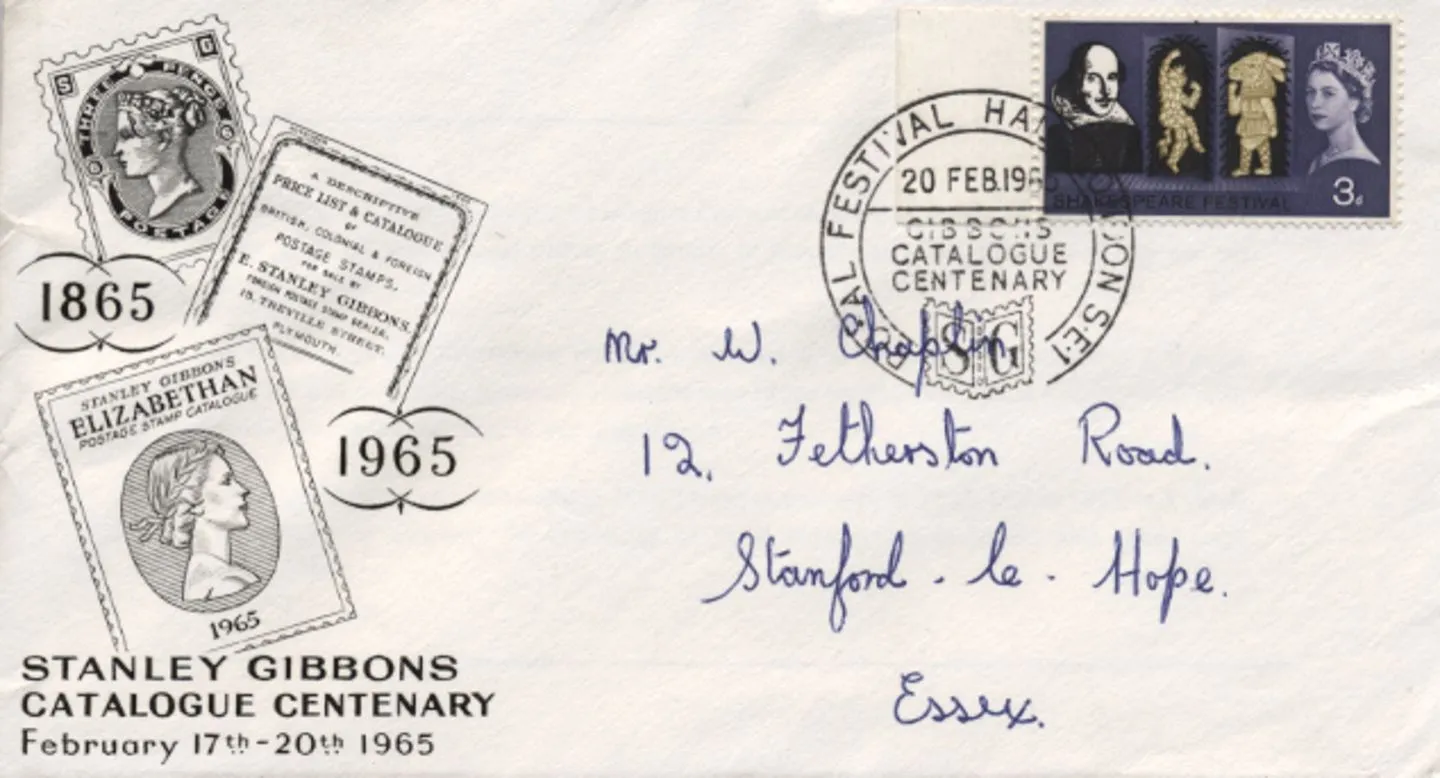 S G
THREE PENCE
POSTAGE
A DESCRIPTIVE
PRICE LIST & CATALOGUE
OF
BRITISH, COLONIAL & FOREIGN
POSTAGE STAMPS,
FOR SALE BY
E. STANLEY GIBBONS,
FOREIGN POSTAGE STAMP DEALER,
15, TREVILLE STREET,
PLYMOUTH.
1865
STANLEY GIBBONS
ELIZABETHAN
POSTAGE STAMP CATALOGUE
1965
1965
STANLEY GIBBONS
CATALOGUE CENTENARY
February 17th-20th 1965
FESTIVAL S.E.1
20 FEB.1965
GIBBONS
CATALOGUE
CENTENARY
SG
3d
SHAKESPEARE FESTIVAL
Mr. W. Chaplin,
12, Fetherston Road.
Stanford-le-Hope.
Essex.